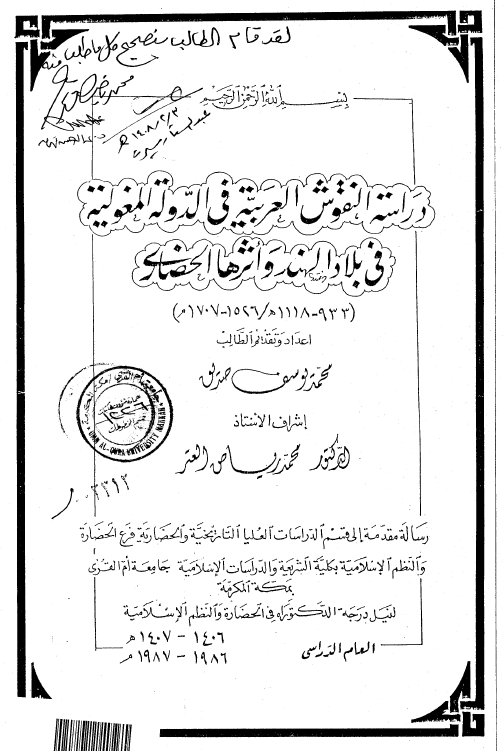 لقد قام الطالب بتصحيح كل ما طلب منه
١٤٠٨/٢/٣ هـ
بسم الله الرحمن الرحيم
دراسة النقوش العربية في الدولة المغولية
في بلاد الهند وأثرها الحضاري
(٩٣٣-١١١٨ه/١٥٢٦-١٧٠٧م)
اعداد وتقديم الطالب
محمد يوسف صديق
إشراف الاستاذ
الدكتور محمد رياض العتر
UMM AL-QURA UNIVERSITY MAKKAH
٠٠٣٣١٢
رسالة مقدمة إلى قسم الدراسات العليا التاريخية والحضارية فرع الحضارة
والنظم الإسلامية بكلية الشريعة والدراسات الإسلامية جامعة أم القرى
بمكة المكرمة
لنيل درجة الدكتوراه في الحضارة والنظم الإسلامية
١٤٠٦ - ١٤٠٧ هـ
العام الدراسي
١٩٨٦ - ١٩٨٧ م